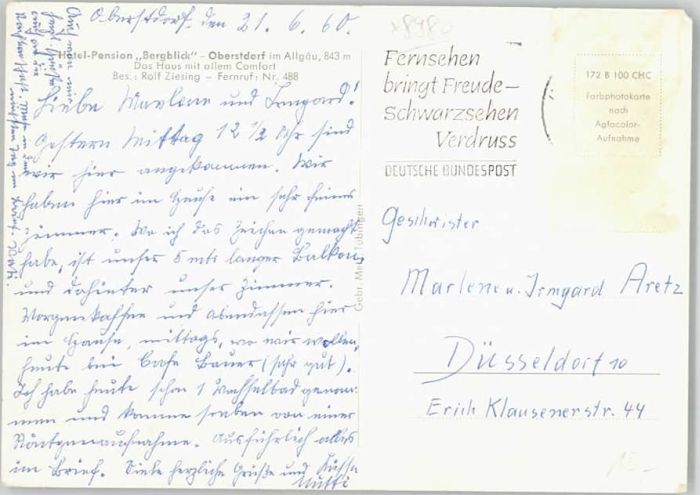 Oberstdorf, den 21. 6. 60.
Hotel-Pension „Bergblick" – Oberstdorf im Allgäu, 843 m
Das Haus mit allem Comfort
Bes.: Rolf Ziesing – Fernruf: Nr. 488
Liebe Marlene und Irmgard!
Gestern Mittag 12 1/2 Uhr sind
wir hier angekommen. Wir
haben hier im Hause ein sehr feines
Zimmer. Wo ich das Zeichen gemacht
habe, ist unser 5 mtr langer Balkon
und dahinter unser Zimmer.
Morgenkaffee und Abendessen hier
im Hause, mittags, wo wir wollen,
heute bei Cafe Bauer (sehr gut).
Ich habe heute schon 1 Wechselbad genom-
men und komme soeben von einer
Röntgenaufnahme. Ausführlich alles
im Brief. Viele herzliche Grüße und Küsse
Mutti
Gebr. Metz, Tübingen
Fernsehen
bringt Freude –
Schwarzsehen
Verdruss
DEUTSCHE BUNDESPOST
172 B 100 CHC
Farbphotokarte
nach
Agfacolor-
Aufnahme
Geschwister
Marlene u. Irmgard Aretz
Düsseldorf 10
Erich Klausenerstr. 44